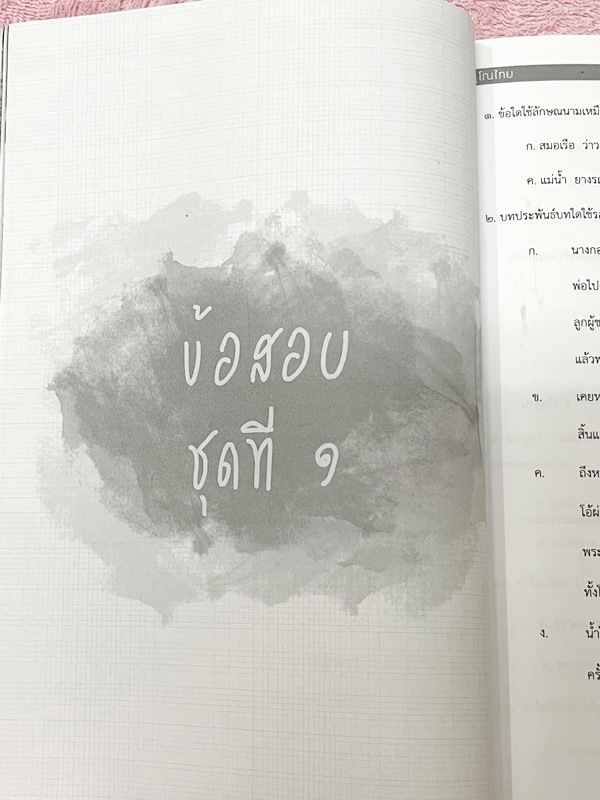 ข้อสอบ
ชุดที่ ๑
โณไทย
๑. ข้อใดใช้ลักษณนามเหมื
ก. สมอเรือ ว่าว
ค. แม่น้ำ ยางรถ
๒. บทประพันธ์บทใดใช้รส
ก. นางกอ
พ่อไป
ลูกผู้ช
แล้วพ
ข. เคยห
สิ้นแ
ค. ถึงห
โอ้ผ่
พระ
ทั้งโ
ง. น้ำใ
ครั้